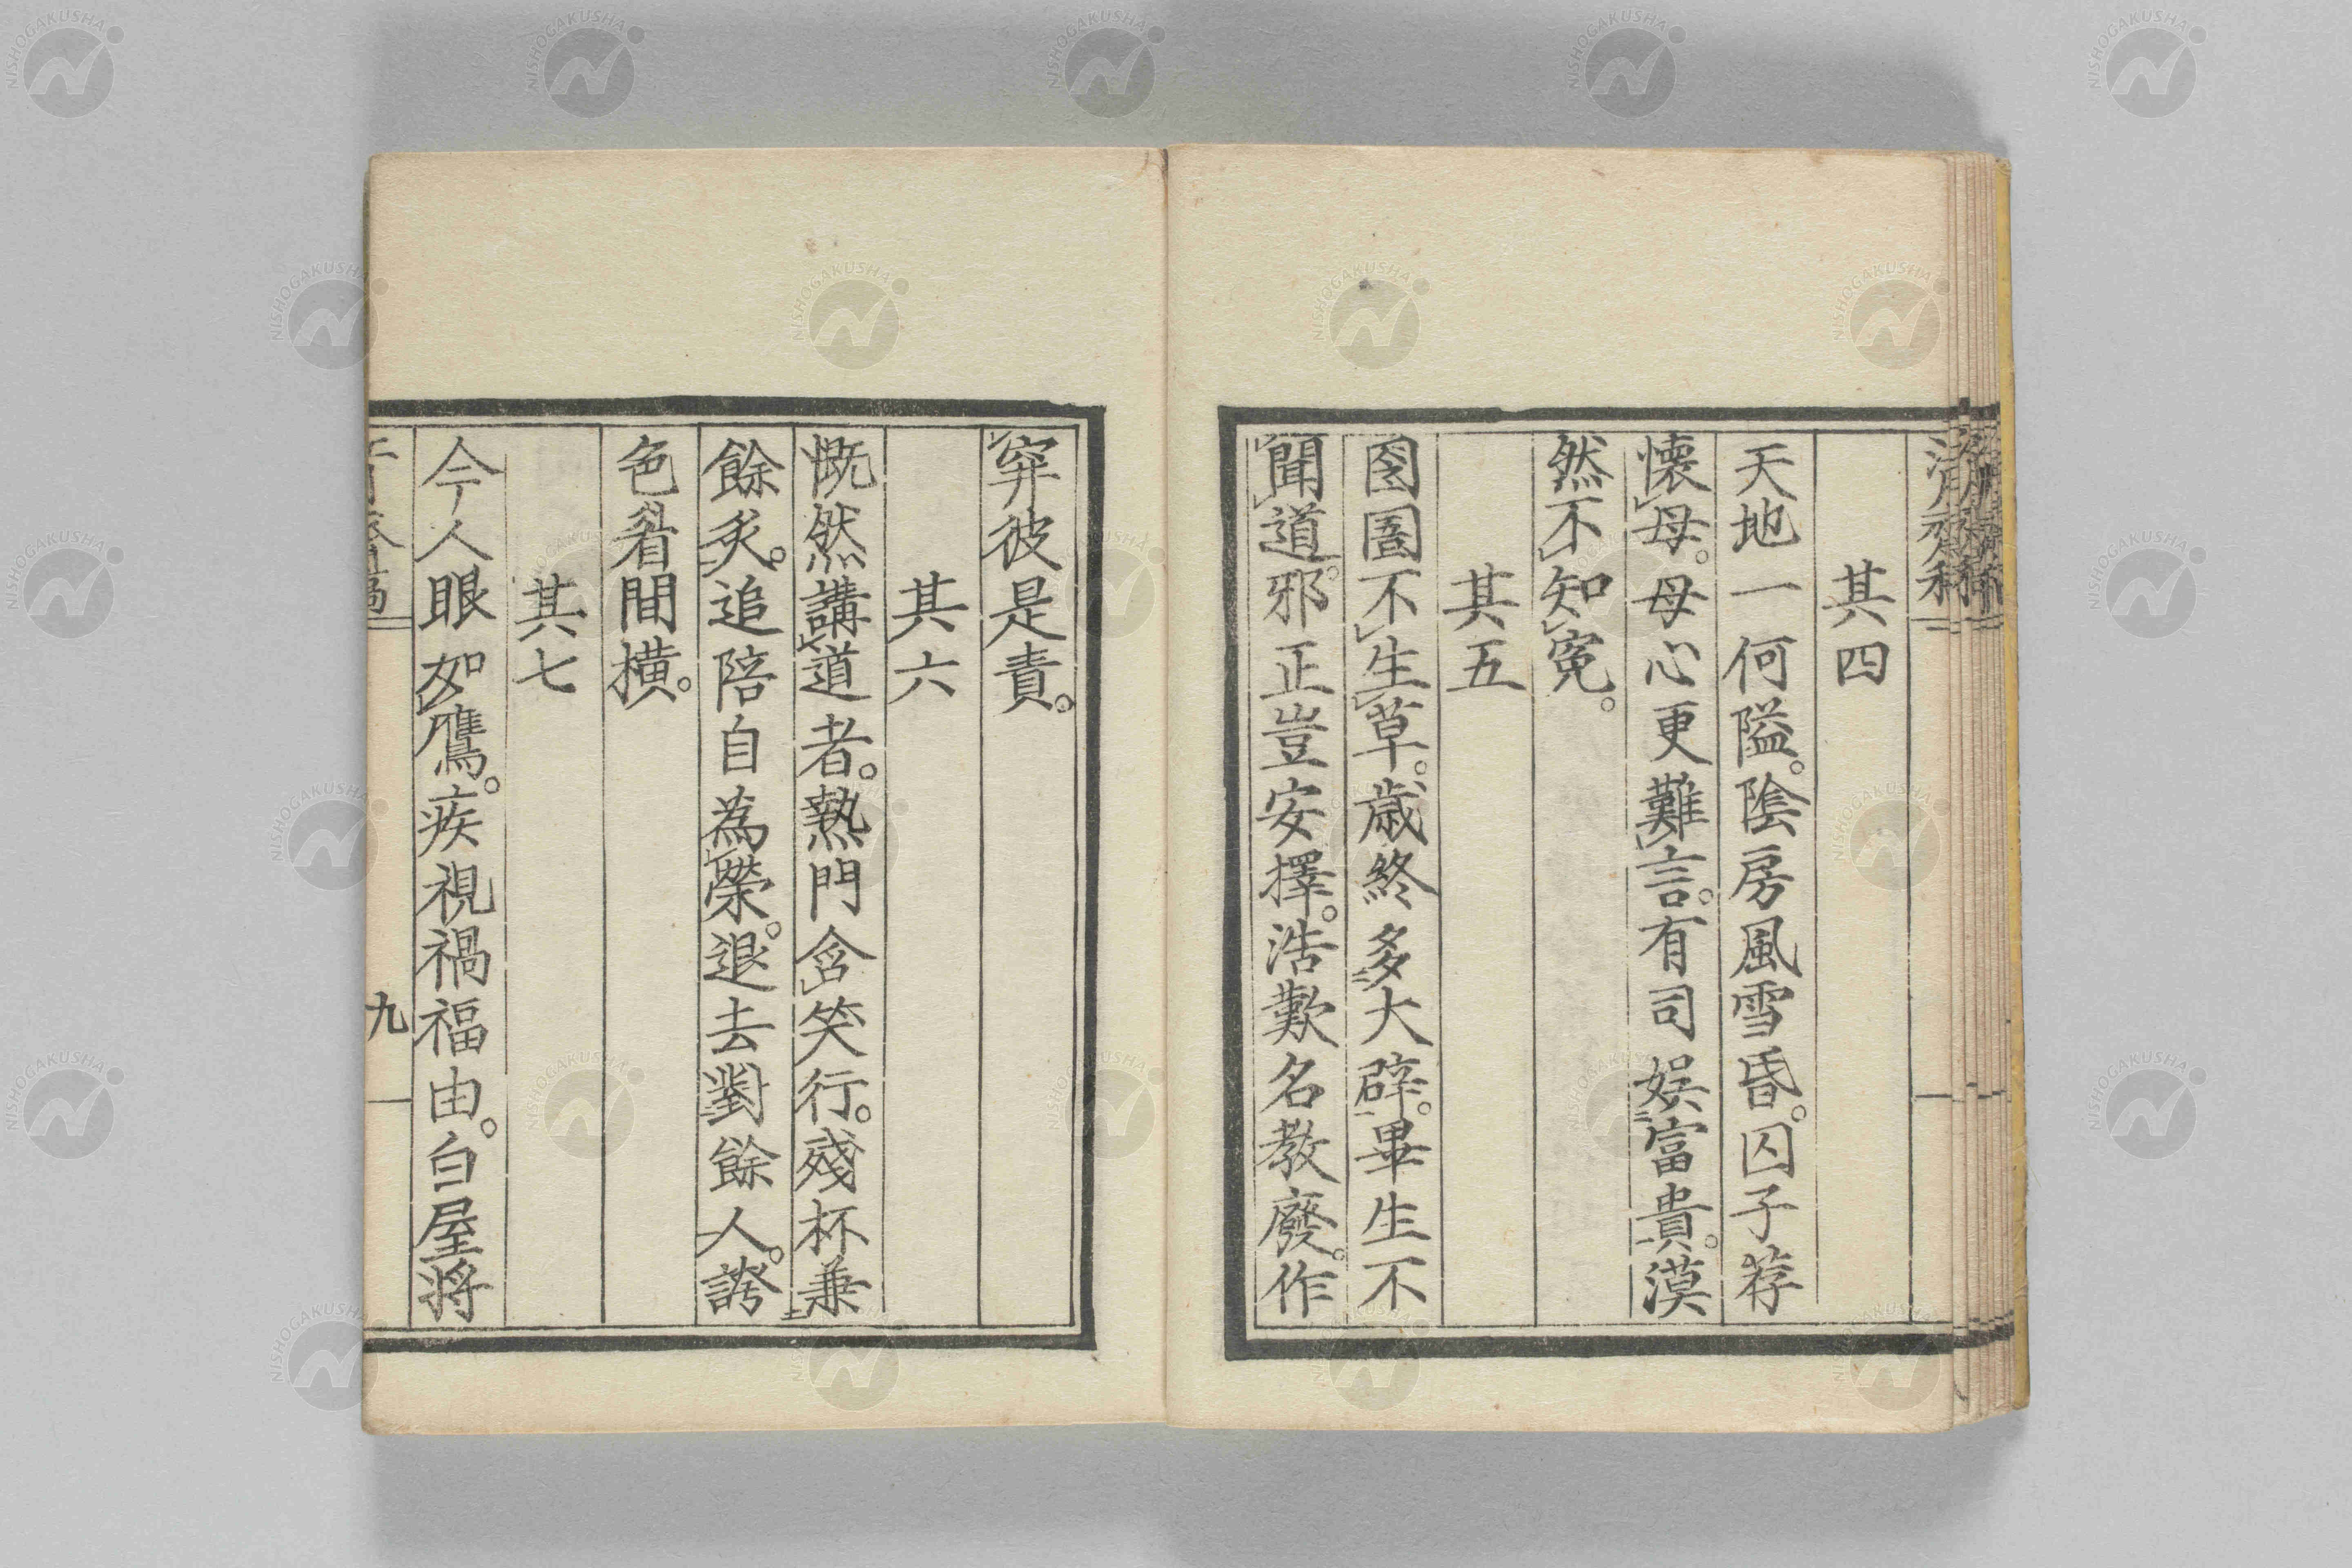 其四
天地一何隘。陰房風雪昏。囚子荐
懐母。母心更難言。有司娯富貴。漠
然不知寃。
其五
囹圄不生草。歳終多大辟。畢生不
聞道。邪正豈安擇。浩歎名教廢。作
穽彼是責。
其六
慨然講道者。熱門含笑行。殘杯兼
餘炙。追陪自為榮。退去對餘人。誇
色眉間横。
其七
今人眼如鷹。疾視禍福由。白屋將
九
NISHOGAKUSHA